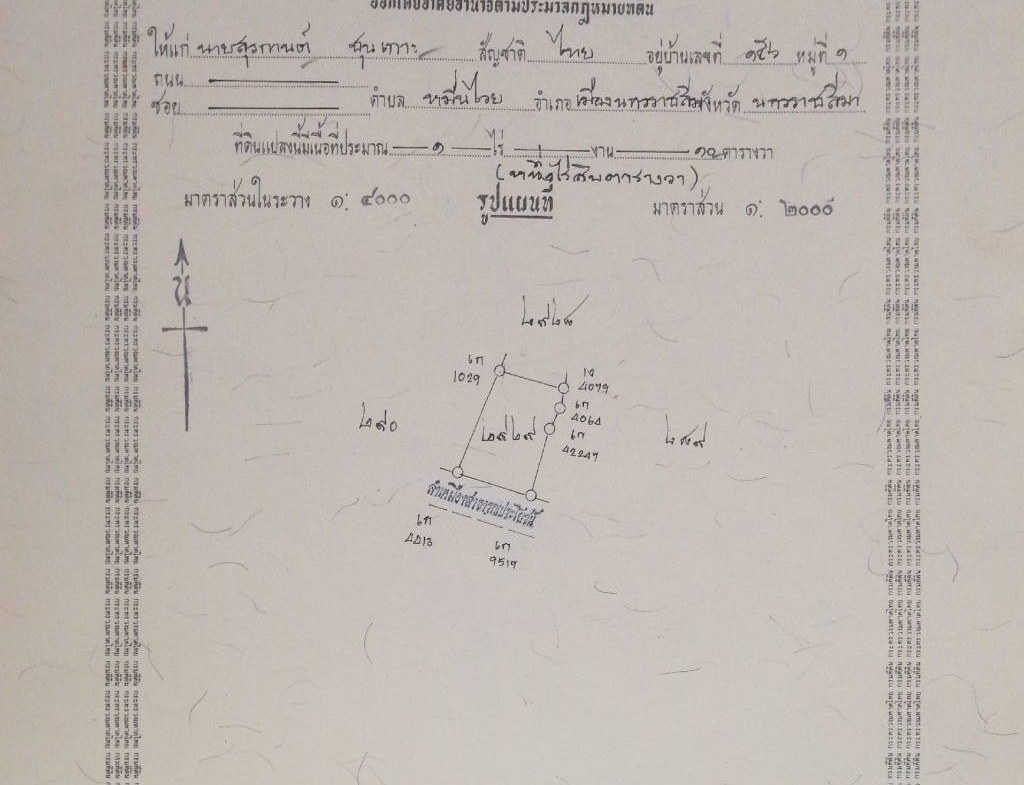 ออกโดยอาศัยอำนาจตามประมวลกฎหมายที่ดิน
ให้แก่ นายสุรกานต์ ขุนเกาะ สัญชาติ ไทย อยู่บ้านเลขที่ ๑๕๖ หมู่ที่ ๑
ถนน
ซอย ตำบล หมื่นไวย อำเภอ เมืองนครราชสีมา จังหวัด นครราชสีมา
ที่ดินแปลงนี้มีเนื้อที่ประมาณ ๑ ไร่ — งาน ๑๐ ตารางวา
(หนึ่งไร่สิบตารางวา)
มาตราส่วนในระวาง ๑: ๔๐๐๐ รูปแผนที่ มาตราส่วน ๑: ๒๐๐๐
น
เก
1029
4079
เก
4064
เก
42247
๒๙๐
ลำเหมืองสาธารณประโยชน์
เก
4413
เก
9519